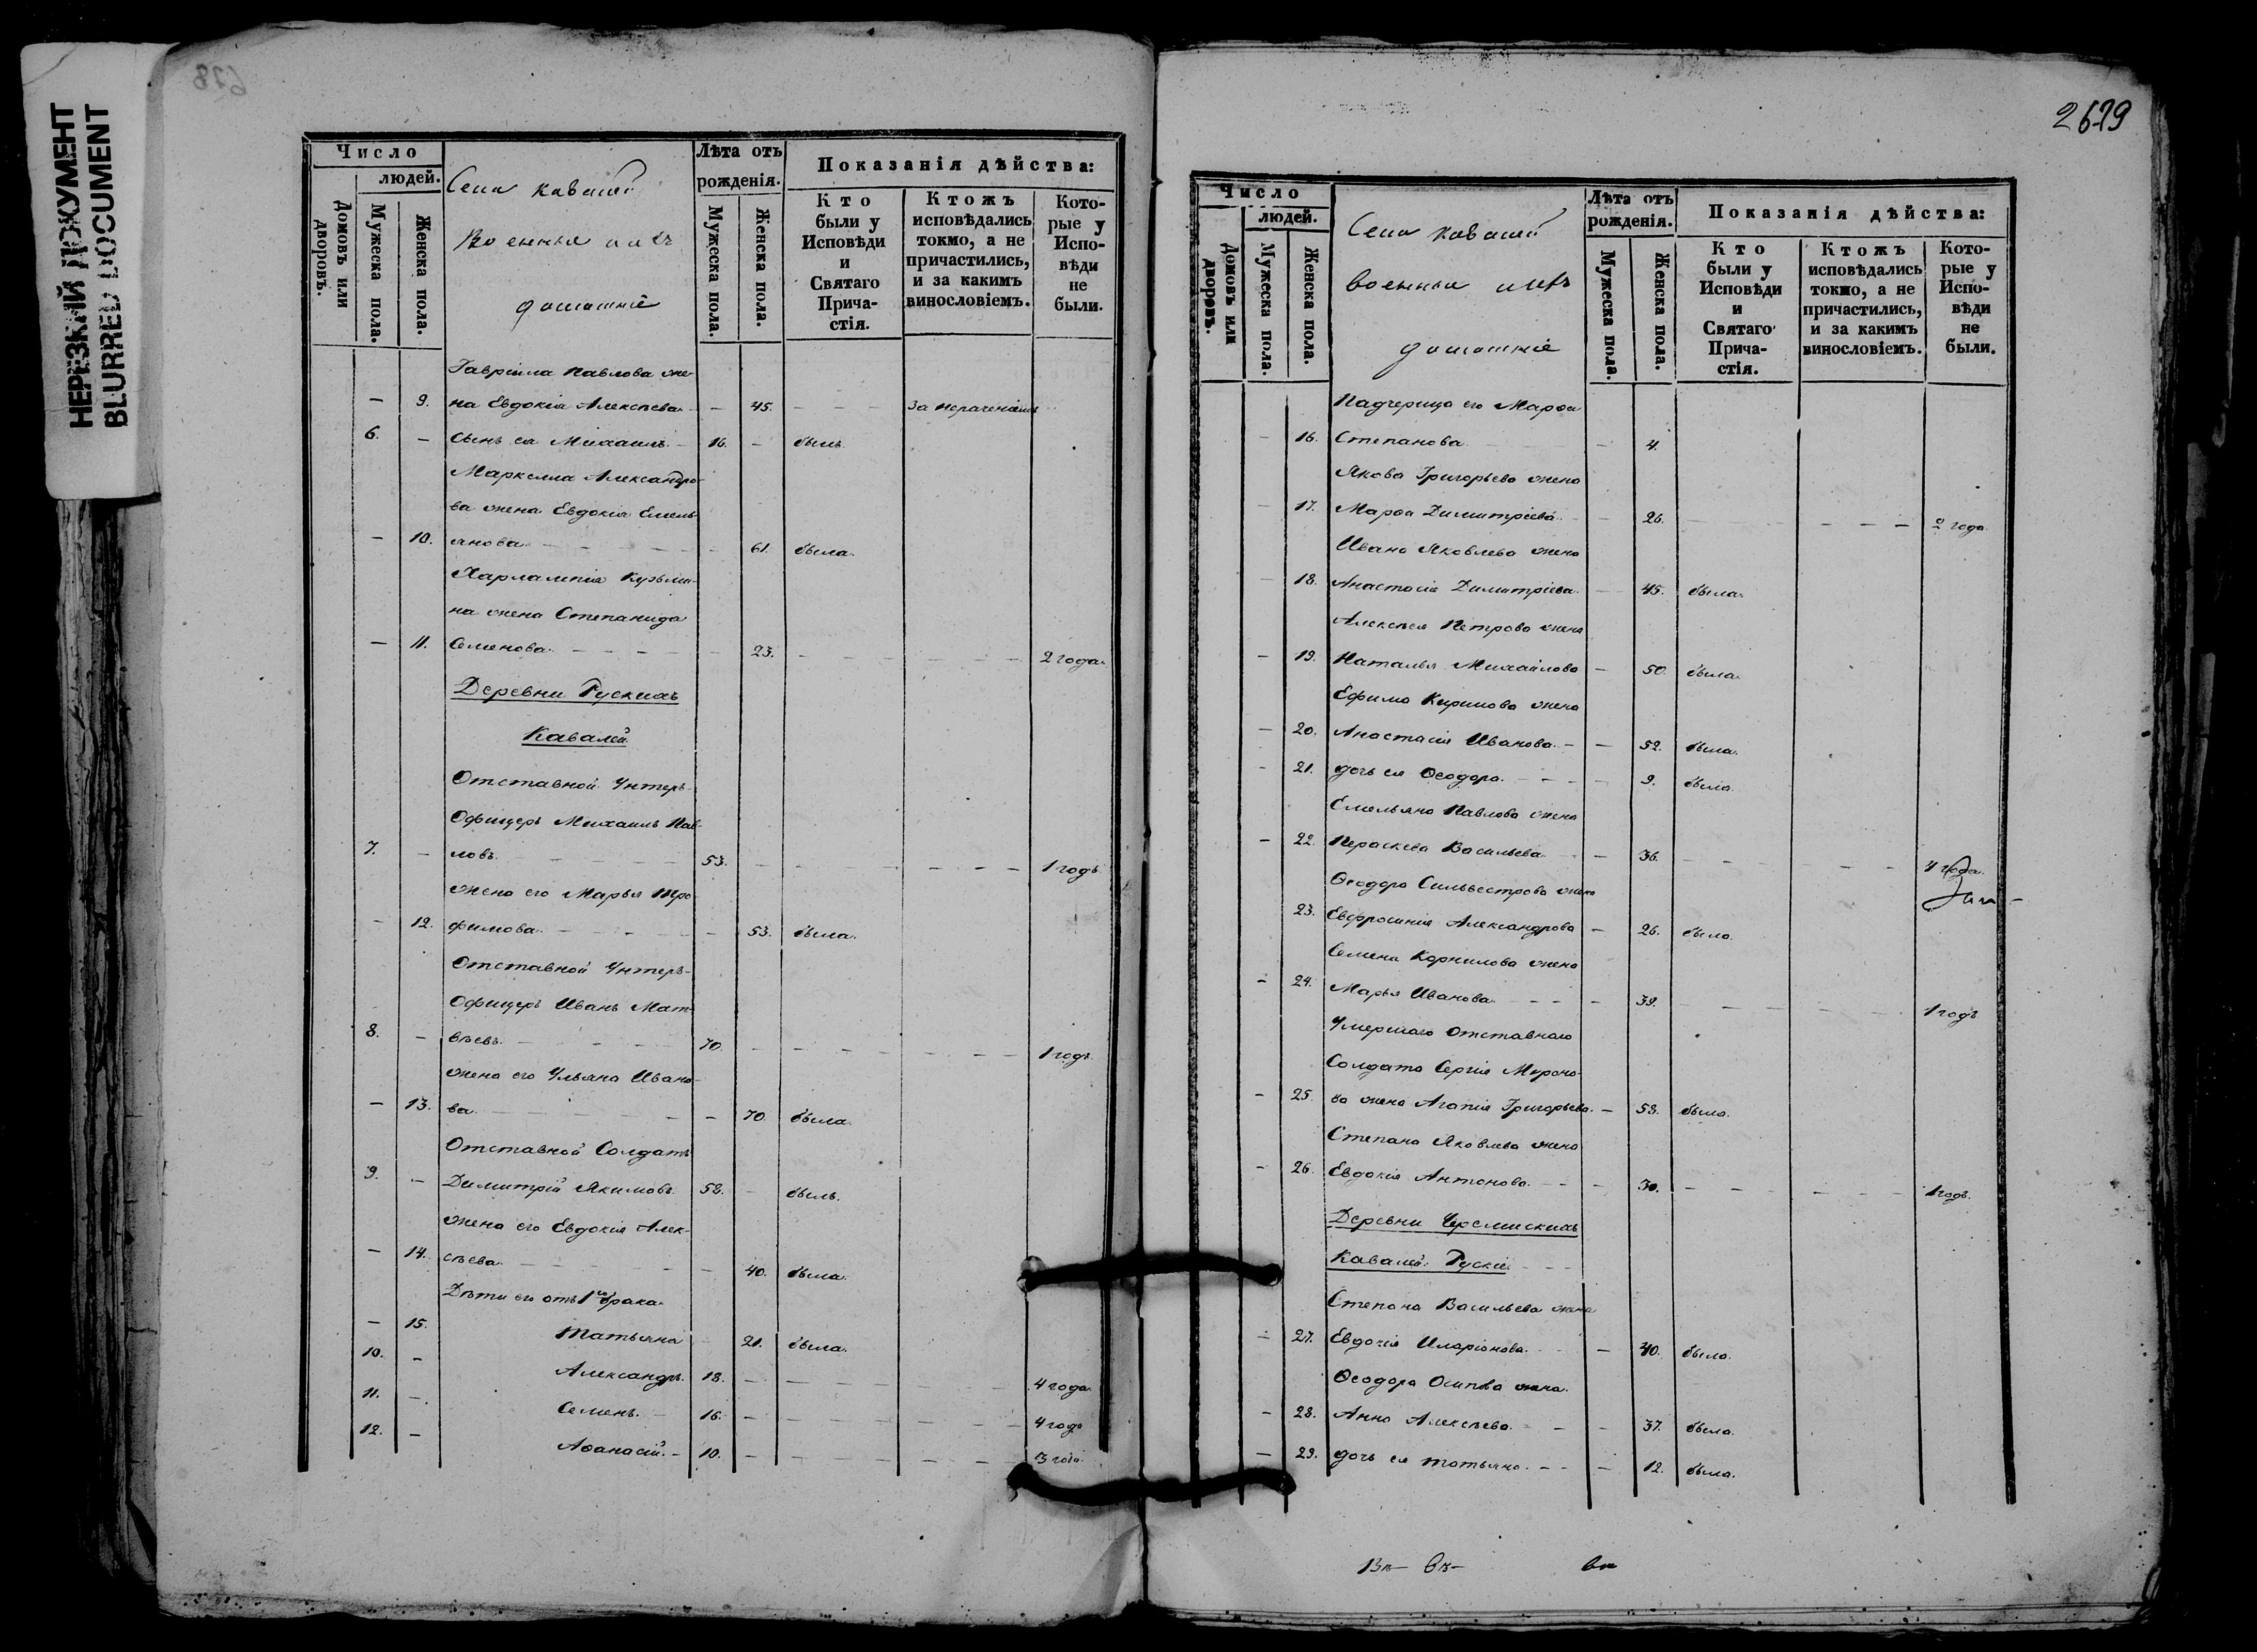 НЕРЕЗКИЙ ДОКУМЕНТ
BLURRED DOCUMENT
678
Число
людей.
Домовъ или дворовъ.
Мужеска пола.
Женска пола.
Села Кавалей
Военныя
домашніе
Лѣта отъ рожденія.
Мужеска пола.
Женска пола.
Показанія дѣйства:
Кто были у Исповѣди и Святаго Прича-стія.
Ктожъ исповѣдались токмо, а не причастились, и за какимъ винословіемъ.
Кото-рые у Испо-вѣди не были.
Гавріила Павлова же-
— 9. на Евдокія Алексѣева — 45. — — — За нерачениемъ
6. — Сынъ ея Михаилъ — 16. — былъ
Маркелла Александро-
ва жена Евдокія Емель-
— 10. янова — 61. была.
Харлампія Кузьми-
на жена Степанида
— 11. Семенова — 23. — — — 2 года.
Деревни Рускихъ
Кавалей
Отставной Унтеръ-
Офицеръ Михаилъ Пав-
7. — ловъ 53. — — — 1 годъ
жена его Марья Тро-
— 12. фимова — 53. была.
Отставной Унтеръ-
Офицеръ Иванъ Мат-
8. — вѣевъ 70. — — — 1 годъ.
жена его Ульяна Ивано-
— 13. ва — 70. была.
Отставной Солдатъ
9. — Димитрій Якимовъ 58. — былъ.
жена его Евдокія Алек-
— 14. сѣева — 40. была.
Дѣти его отъ 1го брака.
— 15. Татьяна — 21. была.
10. — Александръ. 18. — — — 4 года.
11. — Семенъ — 16. — — — 4 года
12. — Аѳанасій. — 10. — — — 3 года.
2679
Число
людей.
Домовъ или дворовъ.
Мужеска пола.
Женска пола.
Села Кавалей
Военныя
домашніе
Лѣта отъ рожденія.
Мужеска пола.
Женска пола.
Показанія дѣйства:
Кто были у Исповѣди и Святаго Прича-стія.
Ктожъ исповѣдались токмо, а не причастились, и за какимъ винословіемъ.
Кото-рые у Испо-вѣди не были.
Падчерица его Марѳа
— 16. Степанова — 4.
Якова Григорьева жена
— 17. Марѳа Димитріева — 26. — — — 2 года.
Ивана Яковлева жена
— 18. Анастасія Димитріева — 45. была.
Алексѣя Петрова жена
— 19. Наталья Михайлова — 50. была.
Ефима Кирилова жена
— 20. Анастасія Иванова — 52. была.
— 21. дочь ея Ѳеодора — 9. была.
Емельяна Павлова жена
— 22. Пераскева Васильева — 36. — — — 4 года.
Ѳеодора Сильвестрова жена
23. Евфросинія Александрова — 26. была.
Семена Корнилова жена
— 24. Марья Иванова — 39. — — — 1 годъ
Умершаго отставнаго
Солдата Сергія Мироно-
— 25. ва жена Агапія Григорьева — 58. была.
Степана Яковлева жена
— 26. Евдокія Антонова — 30. — — — 1 годъ.
Деревни Черемискихъ
Кавалей Рускіе
Степана Васильева жена
— 27. Евдокія Иларіонова — 40. была.
Ѳеодора Осипова жена.
— 28. Анна Алексѣева — 37. была.
— 29. дочь ея Татьяна — 12. была.